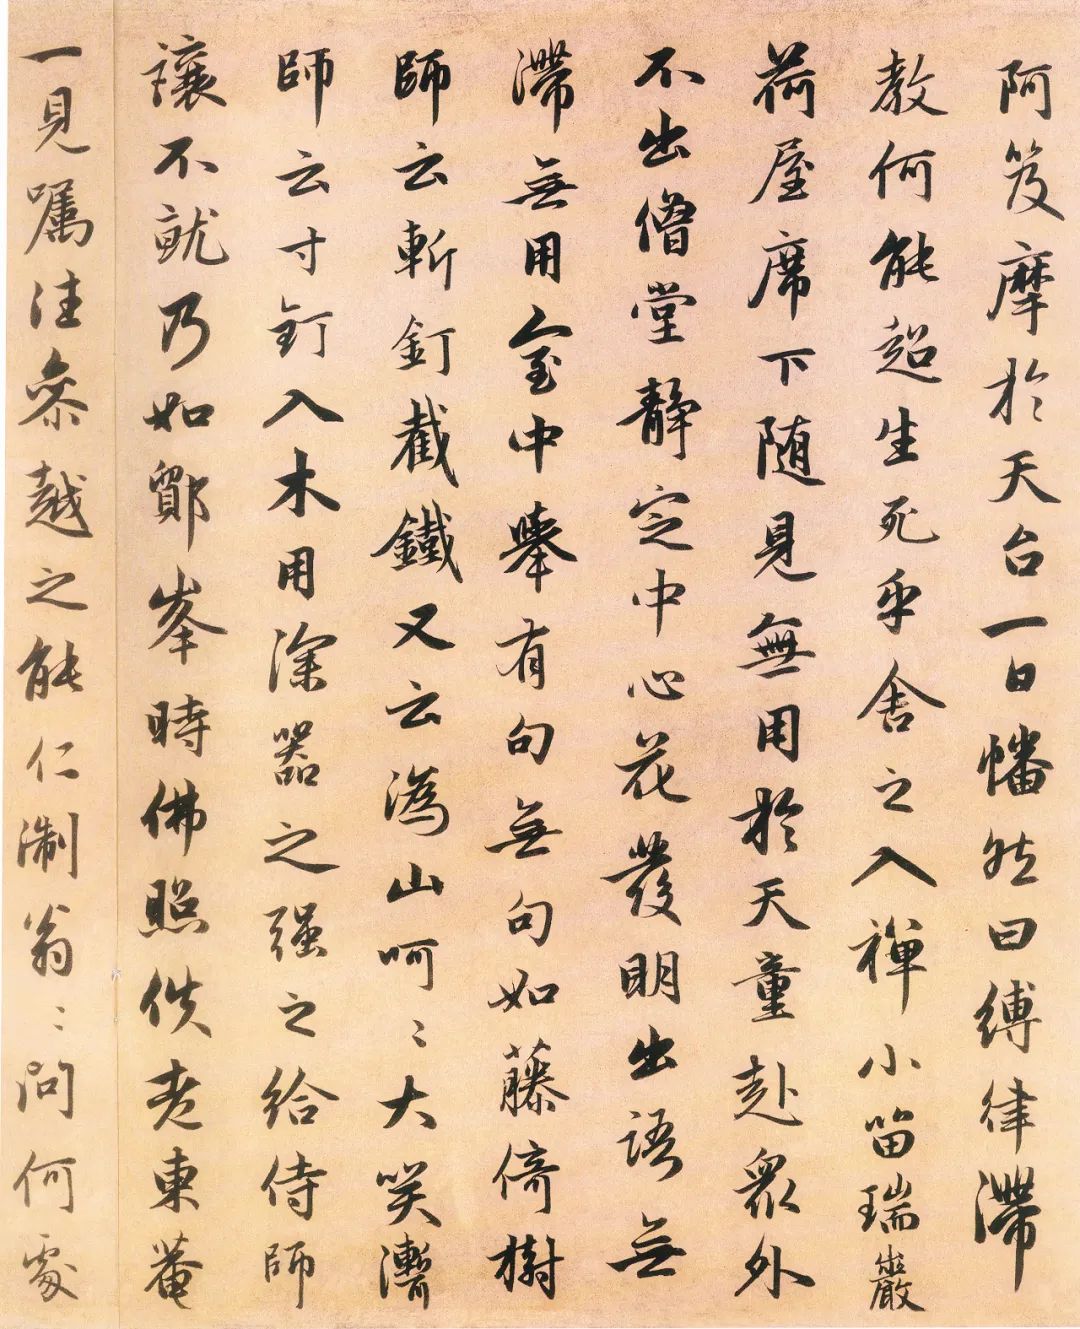 阿笈摩於天台一日幡然曰縛律滯
教何能超生死乎舍之入禪小留瑞巖
荷屋席下随見無用於天童赴眾外
不出僧堂靜定中心花發明出語無
滯無用室中舉有句無句如藤倚樹
師云斬釘截鐵又云溈山呵〻大笑漸
師云寸釘入木用深器之强之給侍師
讓不就乃如鄮峯時佛照佚老東菴
一見囑法叅越之能仁淛翁〻問何處